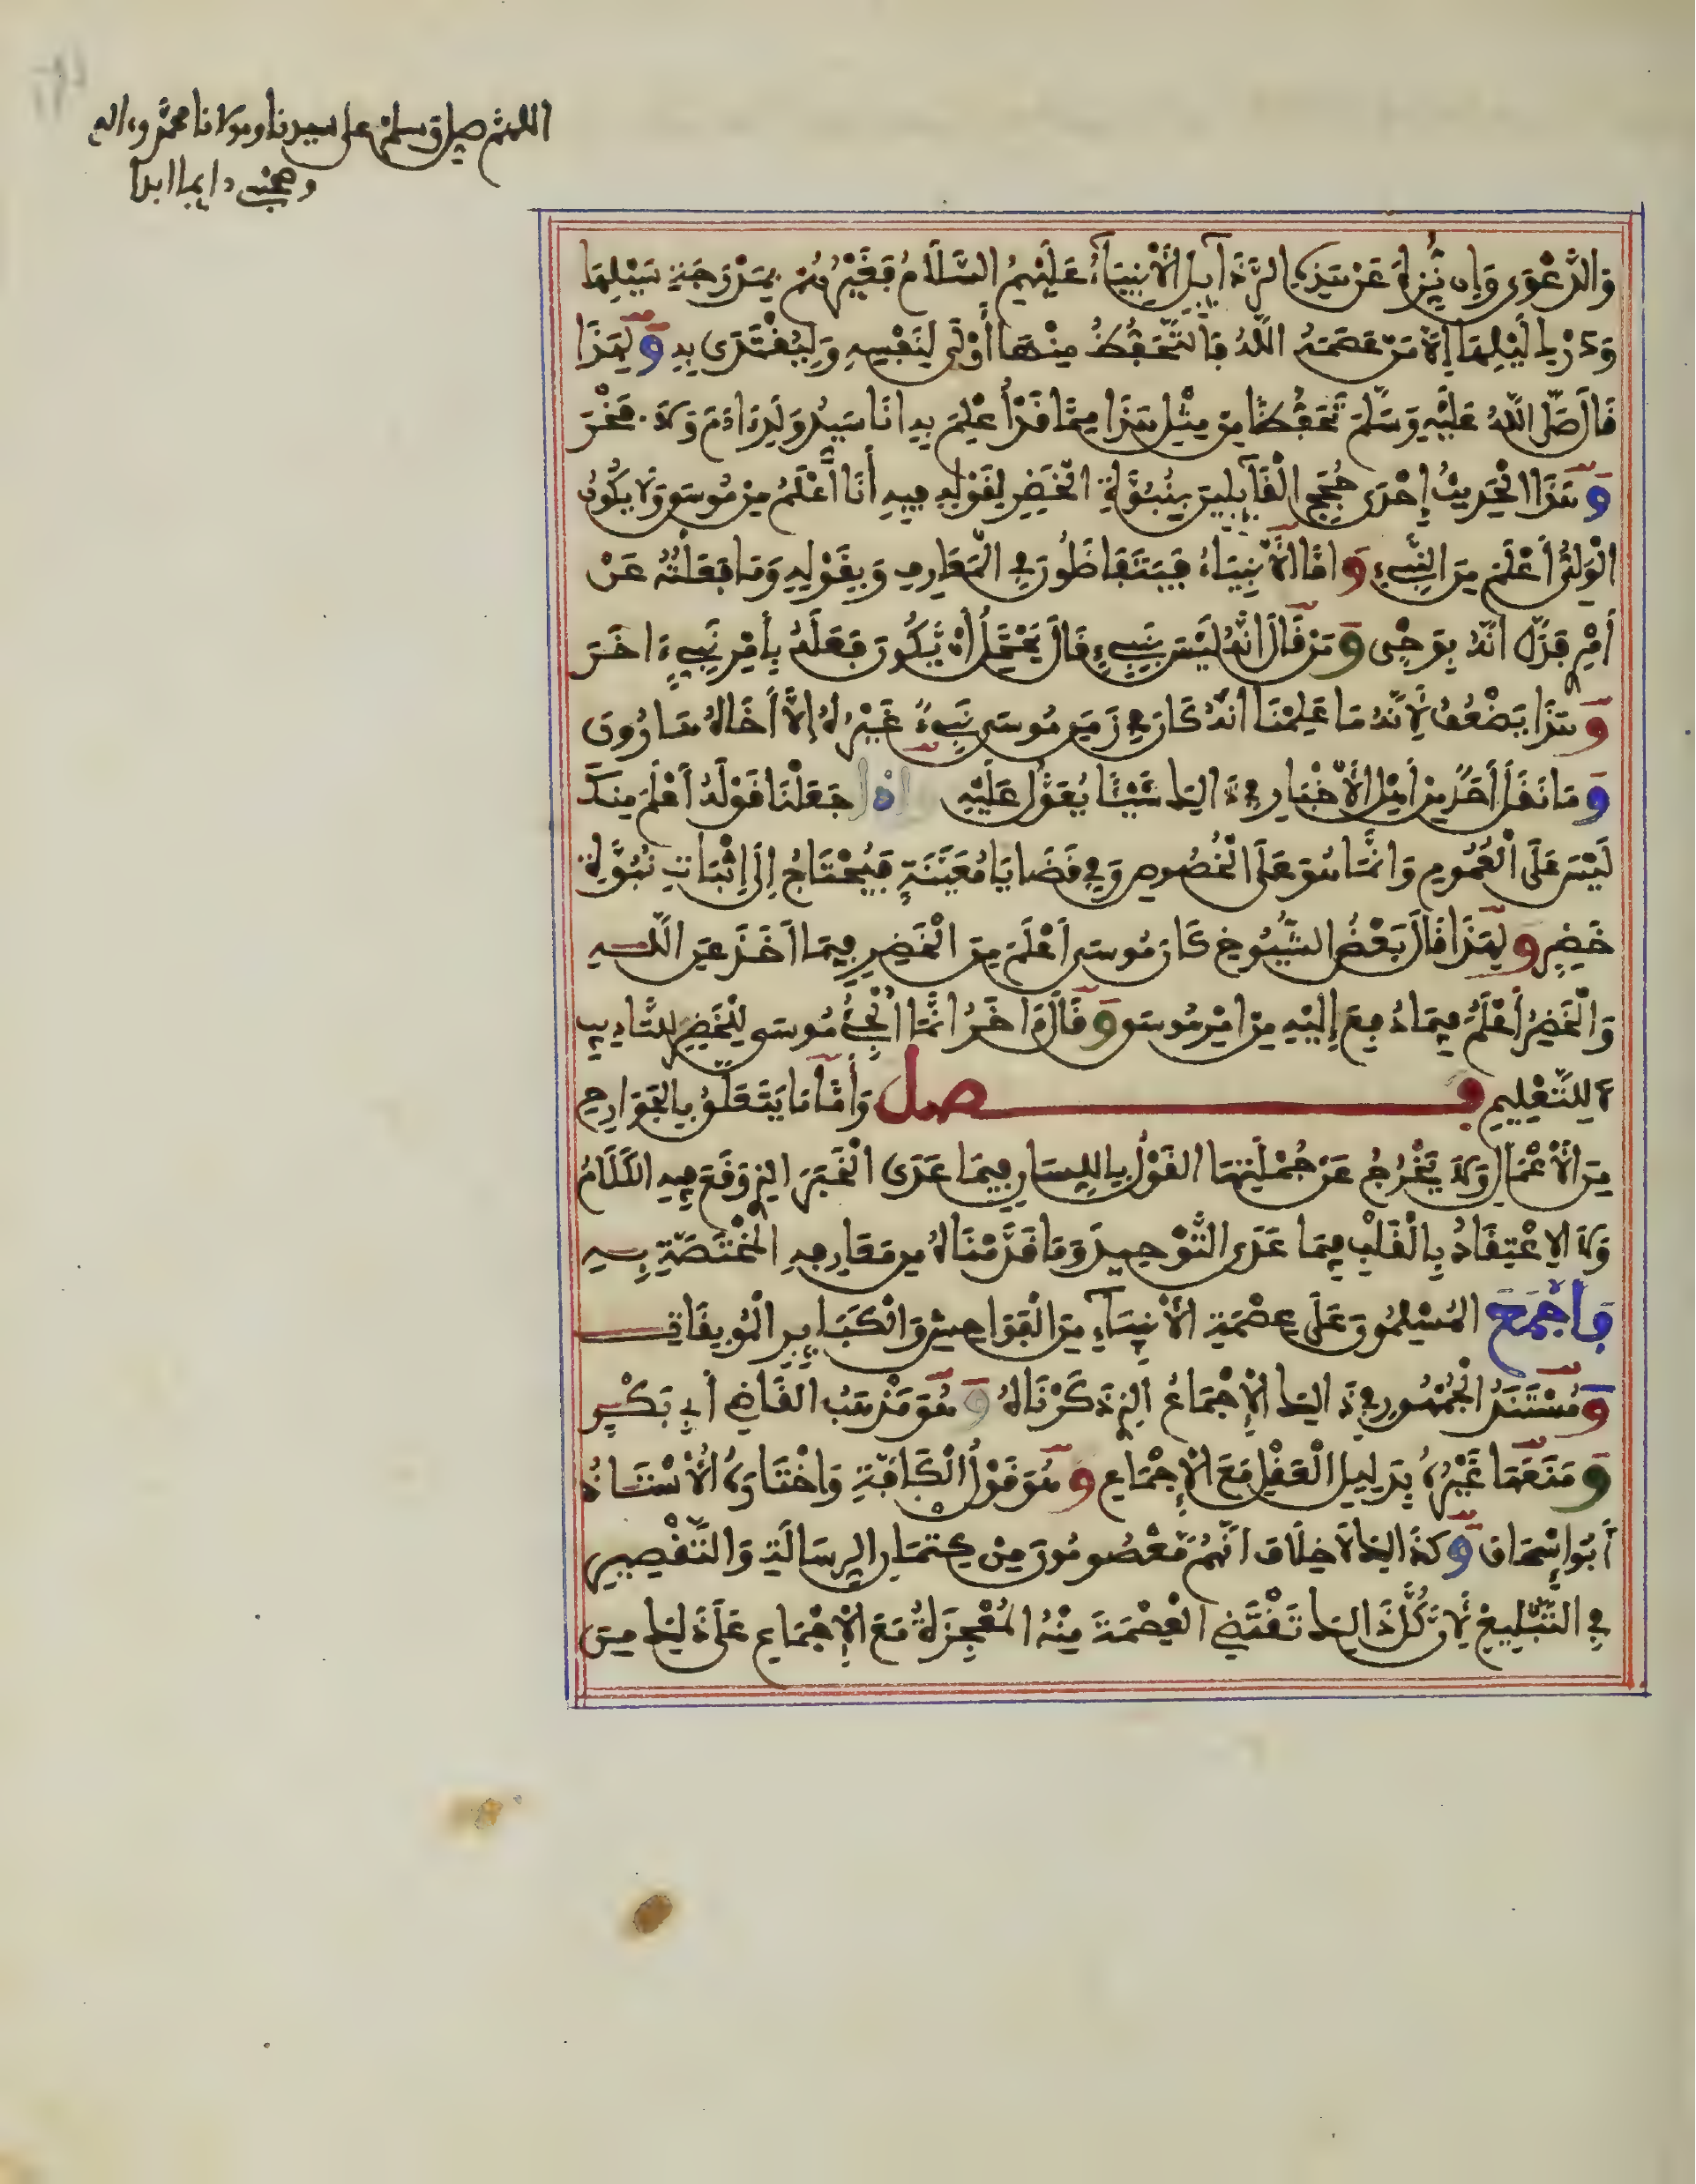 اللهم صل وسلم على سيدنا ومولانا محمد وءاله
وصحبه دايما ابدا
وَالدَّعْوَى وَإِن نُّزِّهَ عَنْ هَذِهِ الرَّذَآيِلِ الْأَنْبِيَآءُ عَلَيْهِمُ السَّلَامُ فَغَيْرُهُمْ بِمَدْرَجَةِ سَبِيلِهَا
وَدَرْكِ لَيْلِهَا إِلَّا مَنْ عَصَمَهُ اللَّهُ فَالتَّحَفُّظُ مِنْهَا أَوْلَى لِنَفْسِهِ وَلِيُقْتَدَى بِهِ وَلِهَذَا
قَالَ صَلَّى اللَّهُ عَلَيْهِ وَسَلَّمَ تَحَفُّظًا مِنْ مِثْلِ هَذَا مِمَّا قَدْ أُعْلِمَ بِهِ أَنَا سَيِّدُ وَلَدِ ءَادَمَ وَلَا فَخْرَ
وَهَذَا الْحَدِيثُ إِحْدَى حُجَجِ الْقَآيِلِينَ بِنُبُوَّةِ الْخَضِرِ لِقَوْلِهِ فِيهِ أَنَا أَعْلَمُ مِنْ مُوسَى وَلَا يَكُونُ
الْوَلِيُّ أَعْلَمَ مِنَ النَّبِيءِ وَأَمَّا الْأَنْبِيَاءُ فَيَتَفَاضَلُونَ فِي الْمَعَارِفِ وَبِقَوْلِهِ وَمَا فَعَلْتُهُ عَنْ
أَمْرِي فَدَلَّ أَنَّهُ بِوَحْيٍ وَمَنْ قَالَ إِنَّهُ لَيْسَ بِنَبِيءٍ قَالَ يَحْتَمِلُ أَنْ يَّكُونَ فَعَلَهُ بِأَمْرِ نَبِيءٍ ءَاخَرَ
وَهَذَا يَضْعُفُ لِأَنَّهُ مَا عَلِمْنَا أَنَّهُ كَانَ فِي زَمَنِ مُوسَى نَبِيءٌ غَيْرُهُ إِلَّا أَخَاهُ هَارُونَ
وَمَا نَقَلَ أَحَدٌ مِنْ أَهْلِ الْأَخْبَارِ فِي ذَالِكَ شَيْئًا يُعَوَّلُ عَلَيْهِ وَإِذَا جَعَلْنَا قَوْلَهُ أَعْلَمَ مِنْكَ
لَيْسَ عَلَى الْعُمُومِ وَإِنَّمَا هُوَ عَلَى الْخُصُوصِ وَفِي قَضَايَا مُعَيَّنَةٍ فَيُحْتَاجُ إِلَى إِثْبَاتِ نُبُوَّةِ
خَضِرٍ وَلِهَذَا قَالَ بَعْضُ الشُّيُوخِ كَانَ مُوسَى أَعْلَمَ مِنَ الْخَضِرِ فِيمَا أَخَذَ عَنِ اللَّهِ
وَالْخَضِرُ أَعْلَمُ فِيمَا دُفِعَ إِلَيْهِ مِنْ أَمْرِ مُوسَى وَقَالَ ءَاخَرُ إِنَّمَا أُلْجِئَ مُوسَى لِلْخَضِرِ لِلتَّادِيبِ
لَا لِلتَّعْلِيمِ فصل وَأَمَّا مَا يَتَعَلَّقُ بِالْجَوَارِحِ
مِنَ الْأَعْمَالِ وَلَا يَخْرُجُ عَنْ جُمْلَتِهَا الْقَوْلُ بِاللِّسَانِ فِيمَا عَدَى الْخَبَرَ الذِي وَقَعَ فِيهِ الْكَلَامُ
وَلَا الِاعْتِقَادُ بِالْقَلْبِ فِيمَا عَدَى التَّوْحِيدَ وَمَا قَدَّمْنَاهُ مِن مَعَارِفِهِ الْمُخْتَصَّةِ بِهِ
فَأَجْمَعَ الْمُسْلِمُونَ عَلَى عِصْمَةِ الْأَنْبِيَآءِ مِنَ الْفَوَاحِشِ وَالْكَبَايِرِ الْمُوبِقَاتِ
وَمُسْتَنَدُ الْجُمْهُورِ فِي ذَالِكَ الْإِجْمَاعُ الذِي ذَكَرْنَاهُ وَهُوَ مَذْهَبُ الْقَاضِي أَبِي بَكْرٍ
وَمَنَعَهَا غَيْرُهُ بِدَلِيلِ الْعَقْلِ مَعَ الْإِجْمَاعِ وَهُوَ قَوْلُ الْكَافَّةِ وَاخْتَارَهُ الْأُسْتَاذُ
أَبُو إِسْحَاقَ وَكَذَالِكَ لَا خِلَافَ أَنَّهُمْ مَّعْصُومُونَ مِنْ كِتْمَانِ الرِّسَالَةِ وَالتَّقْصِيرِ
فِي التَّبْلِيغِ لِأَنَّ كُلَّ ذَالِكَ تَقْتَضِي الْعِصْمَةَ مِنْهُ الْمُعْجِزَةُ مَعَ الْإِجْمَاعِ عَلَى ذَلِكَ مِنَ